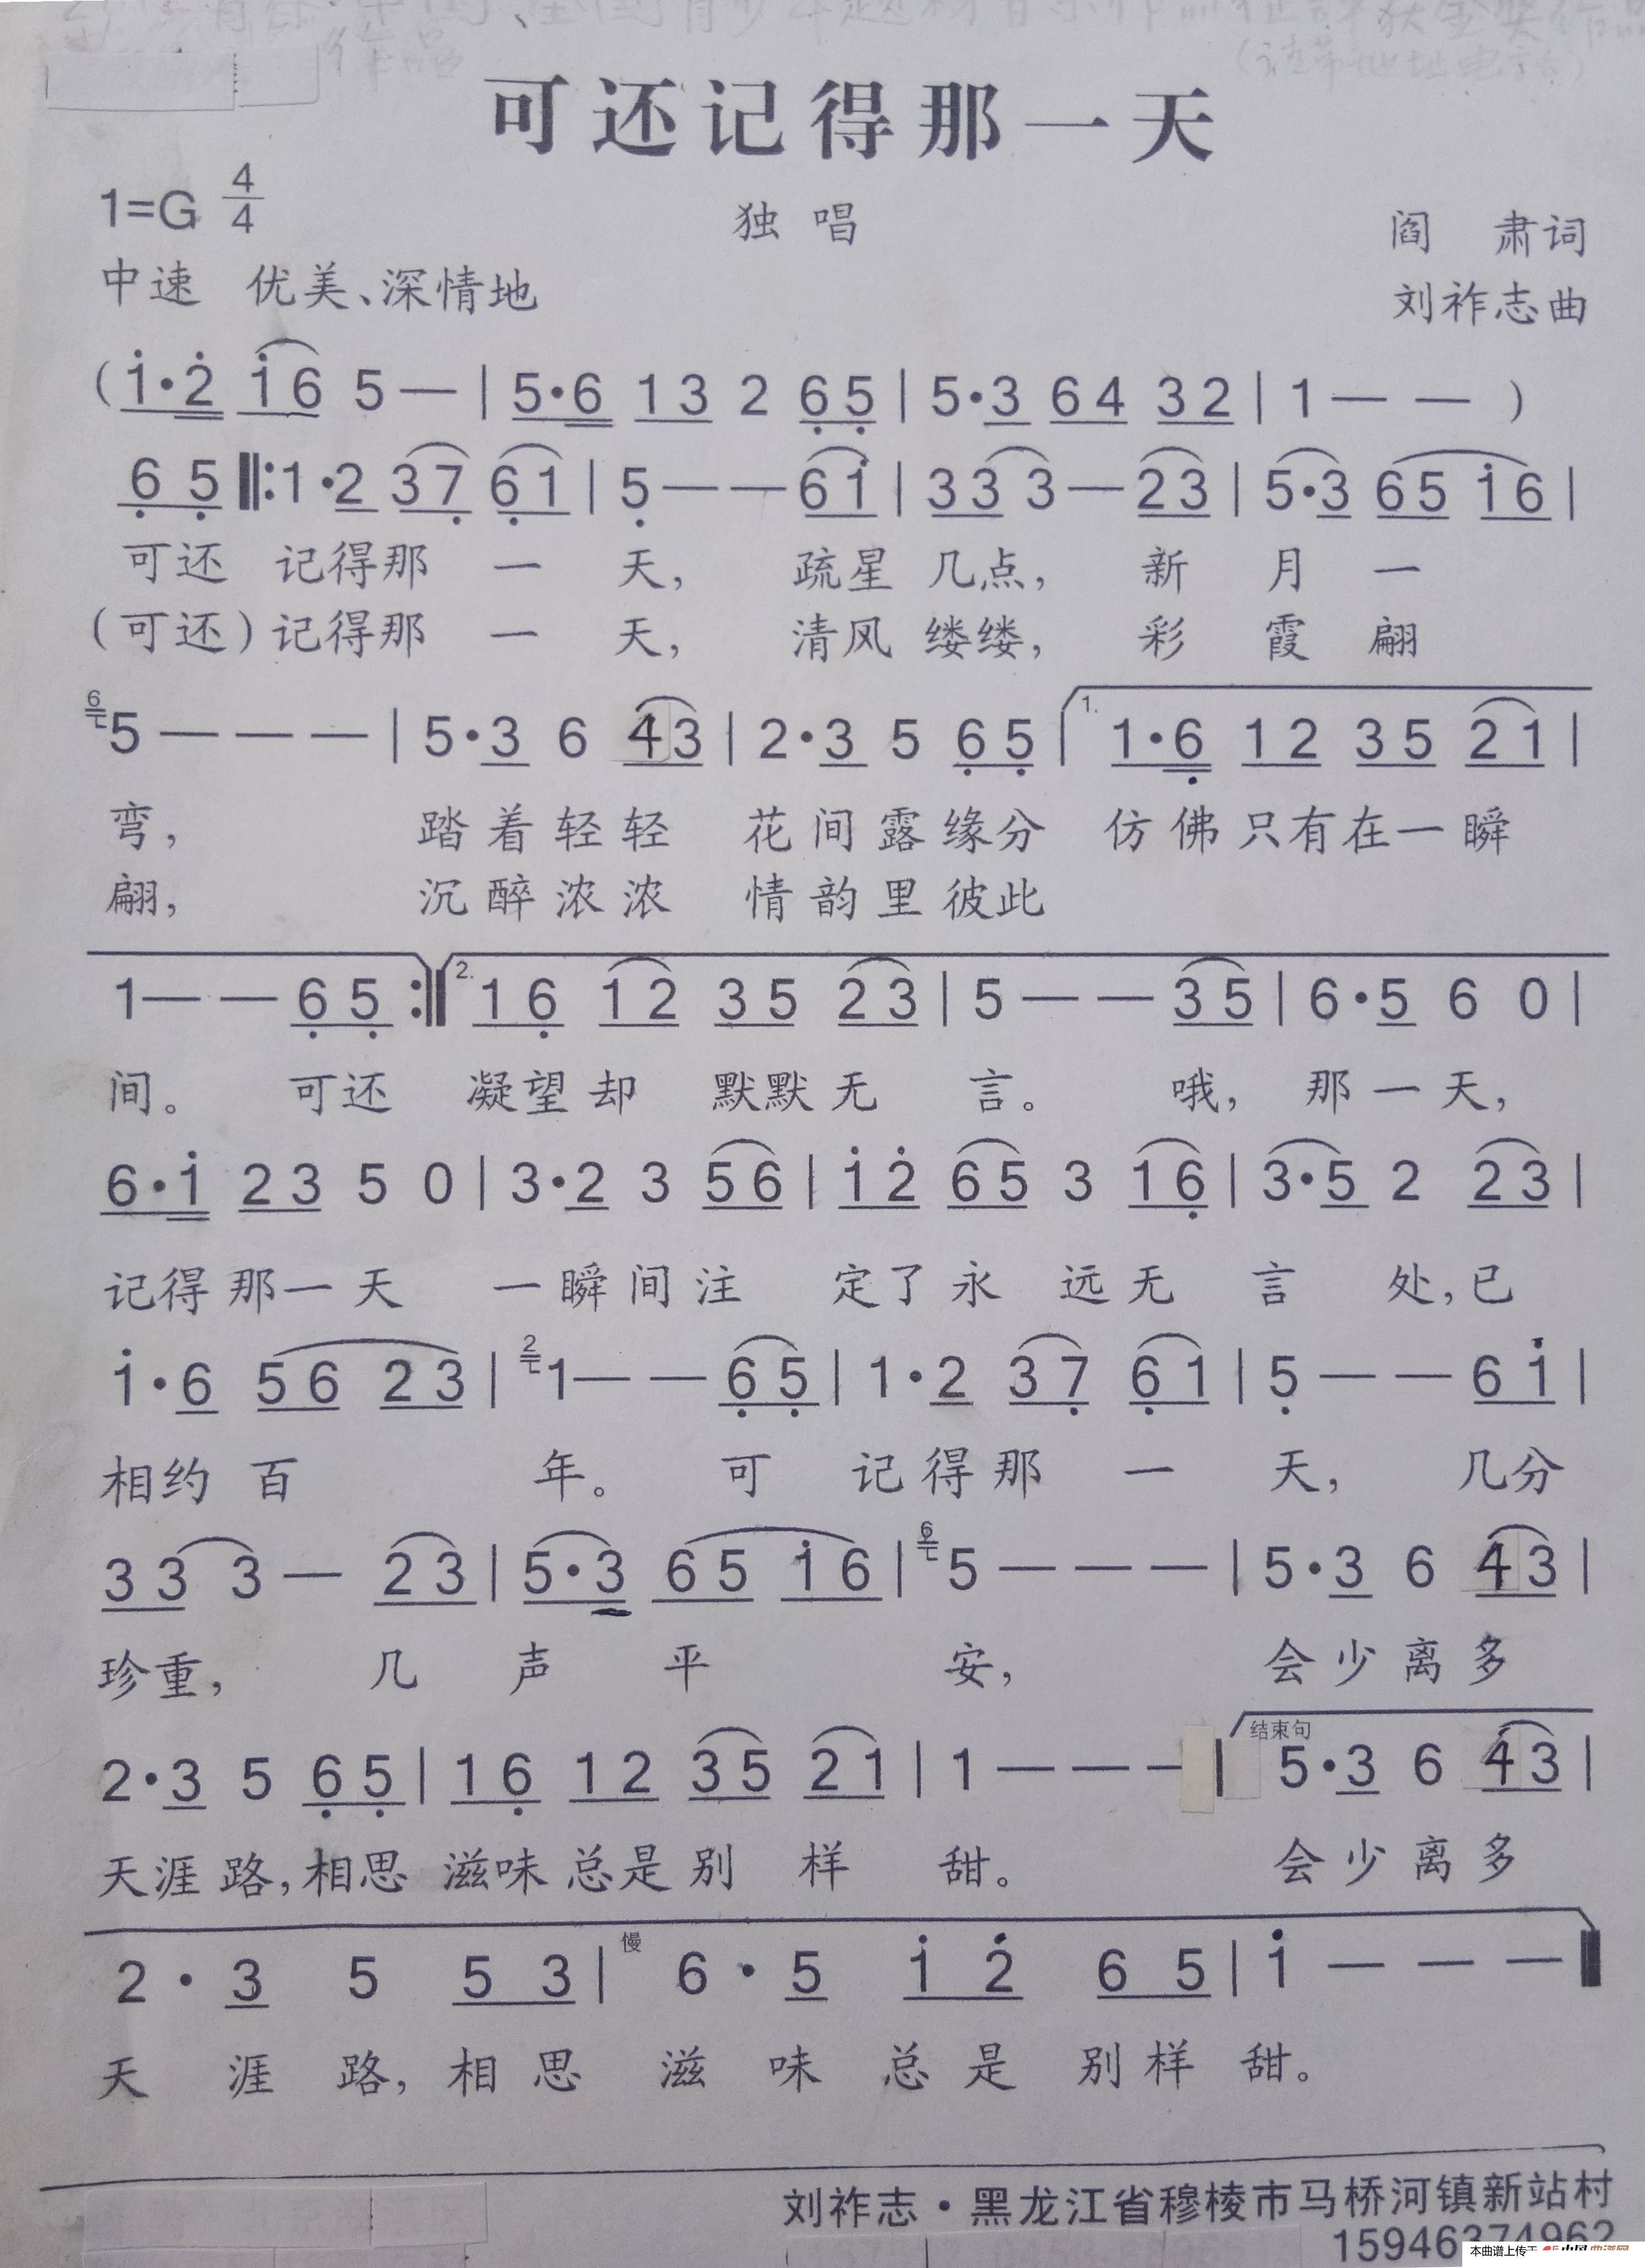 可还记得那一天
1=G 4/4
独唱
阎 肃词
中速 优美、深情地
刘祚志曲
(1·2 16 5— | 5·6 13 2 65 | 5·3 64 32 | 1— — )
65 ‖:1·2 37 61 | 5— —61 | 33 3—23 | 5·3 65 16 |
可还 记得那 一 天, 疏星 几点, 新 月 一
(可还)记得那 一 天, 清风 缕缕, 彩 霞 翩
6 5— — — | 5·3 6 43 | 2·3 5 65 | 1. 1·6 12 35 21 |
弯, 踏着轻轻 花间露缘分 仿佛只有在一瞬
翩, 沉醉浓浓 情韵里彼此
1— —65 :‖ 2. 16 12 35 23 | 5— —35 | 6·5 6 0 |
间。 可还 凝望却 默默无 言。 哦, 那一天,
6·1 23 5 0 | 3·2 3 56 | 12 65 3 16 | 3·5 2 23 |
记得那一天 一瞬间注 定了永 远无 言 处,已
1·6 56 23 | 2 1— —65 | 1·2 37 61 | 5— —61 |
相约百 年。 可 记得那 一 天, 几分
33 3— 23 | 5·3 65 16 | 6 5— — — | 5·3 6 43 |
珍重, 几 声 平 安, 会少离多
2·3 5 65 | 16 12 35 21 | 1— — — | 结束句 5·3 6 43 |
天涯路,相思 滋味总是别 样 甜。 会少离多
2·3 5 53 | 慢 6·5 12 65 | 1— — — ‖
天涯路,相思 滋味总是 别样 甜。
刘祚志·黑龙江省穆棱市马桥河镇新站村
15946374962
本曲谱上传于